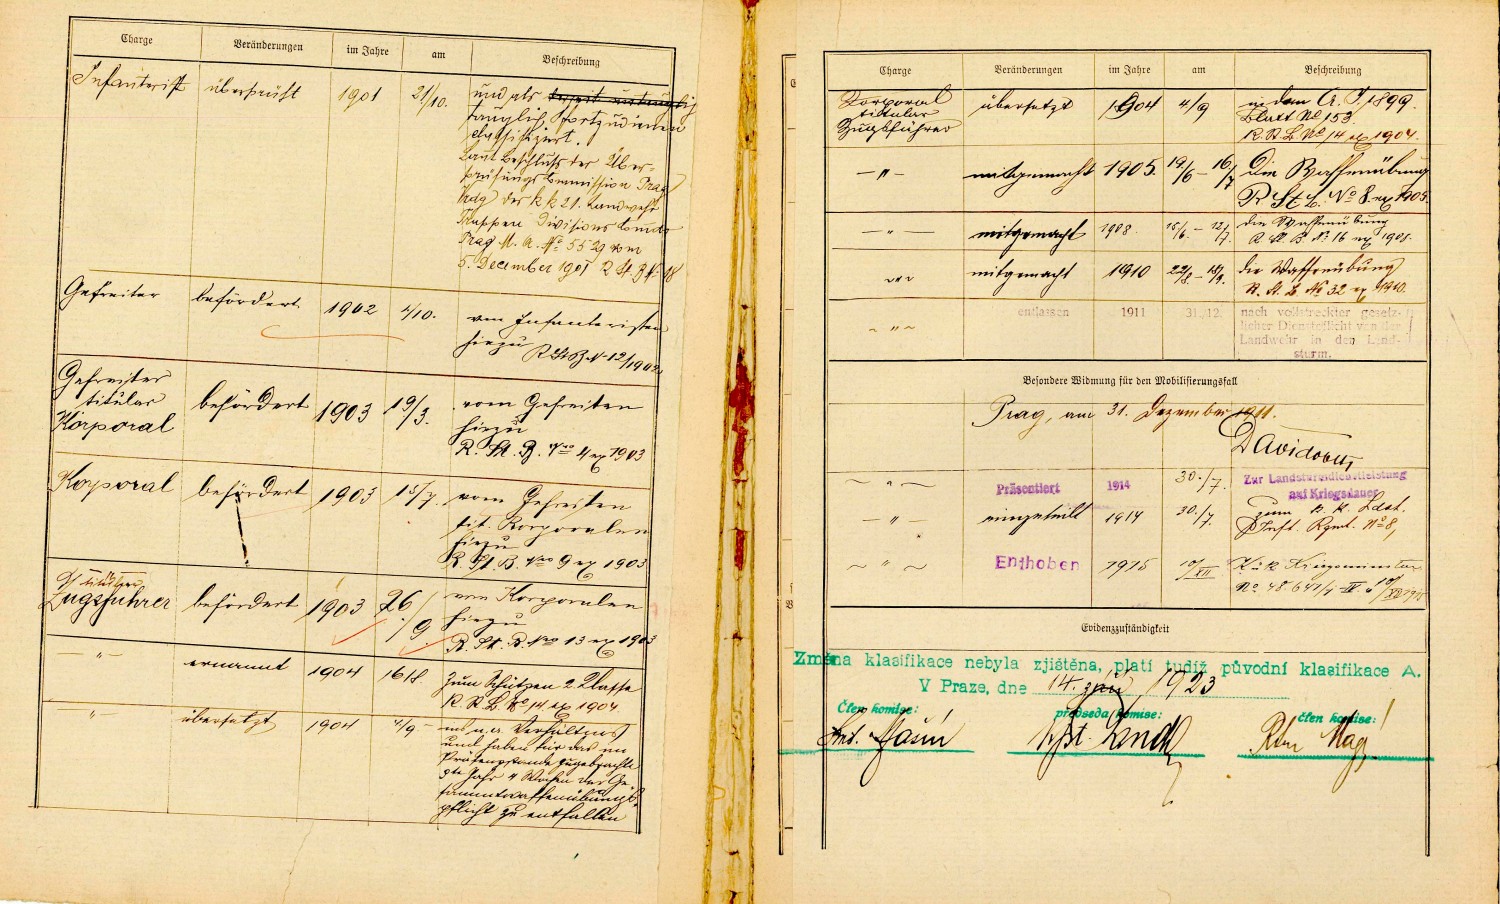 Charge Veränderungen im Jahre am Beschreibung
Infanterist überprüft 1901 21/10. und als
tauglich fortzudienen
classifiziert.
Laut Beschluß der Über-
prüfungs Commission Prag
des k k 21. Landwehr
Truppen Divisions Comdo
Prag M. A. No 5529 vom
5. December 1901 R St. B No 18
Gefreiter befördert 1902 4/10. vom Infanteristen
hiezu
R St B No 12/1902
Gefreiter
titular
Korporal befördert 1903 19/3. vom Gefreiten
hiezu
R. St. B. Nro 4 ex 1903
Korporal befördert 1903 15/7. vom Gefreiten
tit. Korporalen
hiezu
R. St. B. Nro 9 ex 1903
titular
Zugsführer befördert 1903 26/9 von Korporalen
hiezu
R. St. B. Nro 13 ex 1903
— " — ernannt 1904 16/8 zum Schützen 2. Classe
R. St. B. No 14 ex 1904.
— " — übersetzt 1904 4/9 Verhältnis
und haben für das im
Präsenzstande zugebrachte
Jahr 4 Wochen der Ge-
sammtwaffenübungs-
pflicht zu entfallen
Charge Veränderungen im Jahre am Beschreibung
Korporal
titular
Zugsführer übersetzt 1904 4/9 in den A. J. 1899.
Blatt No 153
R. St. B. No 14 ex 1904.
— " — mitgemacht 1905. 19/6 – 16/7 Die Waffenübung
R. St. B. No 8. ex 1905.
— " — mitgemacht 1908. 15/6. – 12/7. die Waffenübung
R. St. B. No 16 ex 1908.
" mitgemacht 1910 22/8 – 18/9. die Waffenübung
R. St. B. No 32 ex 1910.
~ " ~ entlassen 1911 31. 12. nach vollstreckter gesetz-
licher Dienstpflicht von der
Landwehr in den Land-
sturm.
Besondere Widmung für den Mobilisierungsfall
Prag, am 31. Dezember 1911.
~ " ~ Präsentiert 1914 30./7. Zur Landsturmdienstleistung
auf Kriegsdauer
— " — eingeteilt 1914 30./7. zum k. k. Ldst.
Inft. Rgmt. No 8,
~ " ~ Enthoben 1915 10/XII K. u k Kriegsminister
No. 48.641/
Evidenzzuständigkeit
Změna klasifikace nebyla zjištěna, platí tudíž původní klasifikace A.
V Praze, dne 14. září 1923
Člen komise: předseda komise: člen komise: